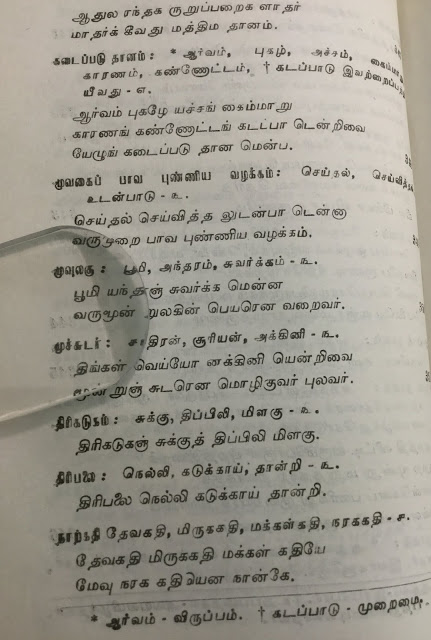 ஆதுல ரந்தக ருறுப்பறைக ளாதர்
மாதர்க் கீவது மத்திம தானம்.
கடைப்படு தானம் : * ஆர்வம், புகழ், அச்சம், கைம்மாறு
காரணம், கண்ணோட்டம், † கடப்பாடு இவற்றைப்பற்றி
யீவது - எ.
ஆர்வம் புகழே யச்சங் கைம்மாறு
காரணங் கண்ணோட்டங் கடப்பா டென்றிவை
யேழுங் கடைப்படு தான மென்ப.
மூவகைப் பாவ புண்ணிய வழக்கம் : செய்தல், செய்வித்தல்
உடன்பாடு - ௩.
செய்தல் செய்வித்த லுடன்பா டென்னு
வருமுறை பாவ புண்ணிய வழக்கம்.
மூவுலகு : பூமி, அந்தரம், சுவர்க்கம் - ௩.
பூமி யந்தரஞ் சுவர்க்க மென்ன
வருமூன் றுலகின் பெயரென வறைவர்.
முச்சுடர் : சந்திரன், சூரியன், அக்கினி - ௩.
திங்கள் வெய்யோ னக்கினி யென்றிவை
மூன்றுஞ் சுடரென மொழிகுவர் புலவர்.
திரிகடுகம் : சுக்கு, திப்பிலி, மிளகு - ௩.
திரிகடுகஞ் சுக்குத் திப்பிலி மிளகு.
திரிபலை : நெல்லி, கடுக்காய், தான்றி - ௩.
திரிபலை நெல்லி கடுக்காய் தான்றி.
நாற்கதி தேவகதி, மிருககதி, மக்கள்கதி, நரககதி - ச.
தேவகதி மிருககதி மக்கள் கதியே
மேவு நரக கதியென நான்கே.
* ஆர்வம் - விருப்பம். † கடப்பாடு - முறைமை.